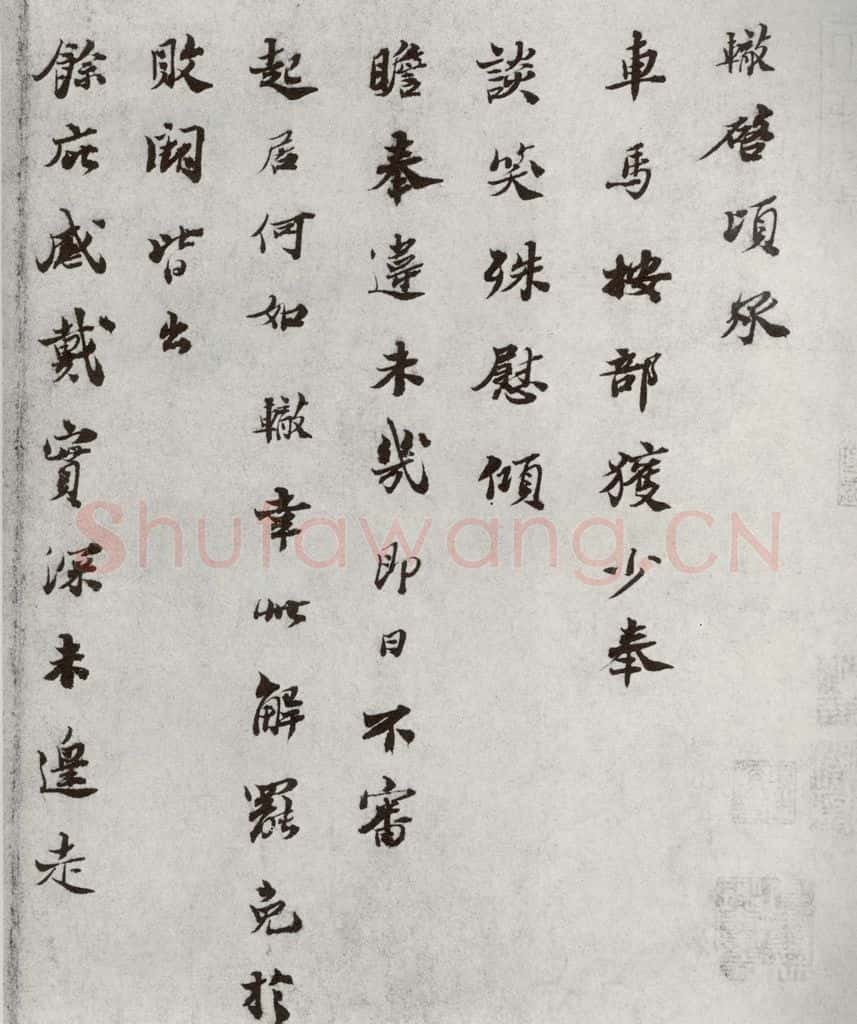 轍啓頃承
車馬按部獲少奉
談笑殊慰傾
瞻奉違未幾即日不審
起居何如轍幸此解罷免於
敗闕皆出
餘庇感戴實深未遑走
Shufawang.CN